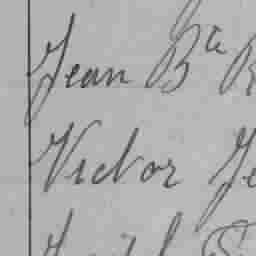 Jean Bte
Victor Je